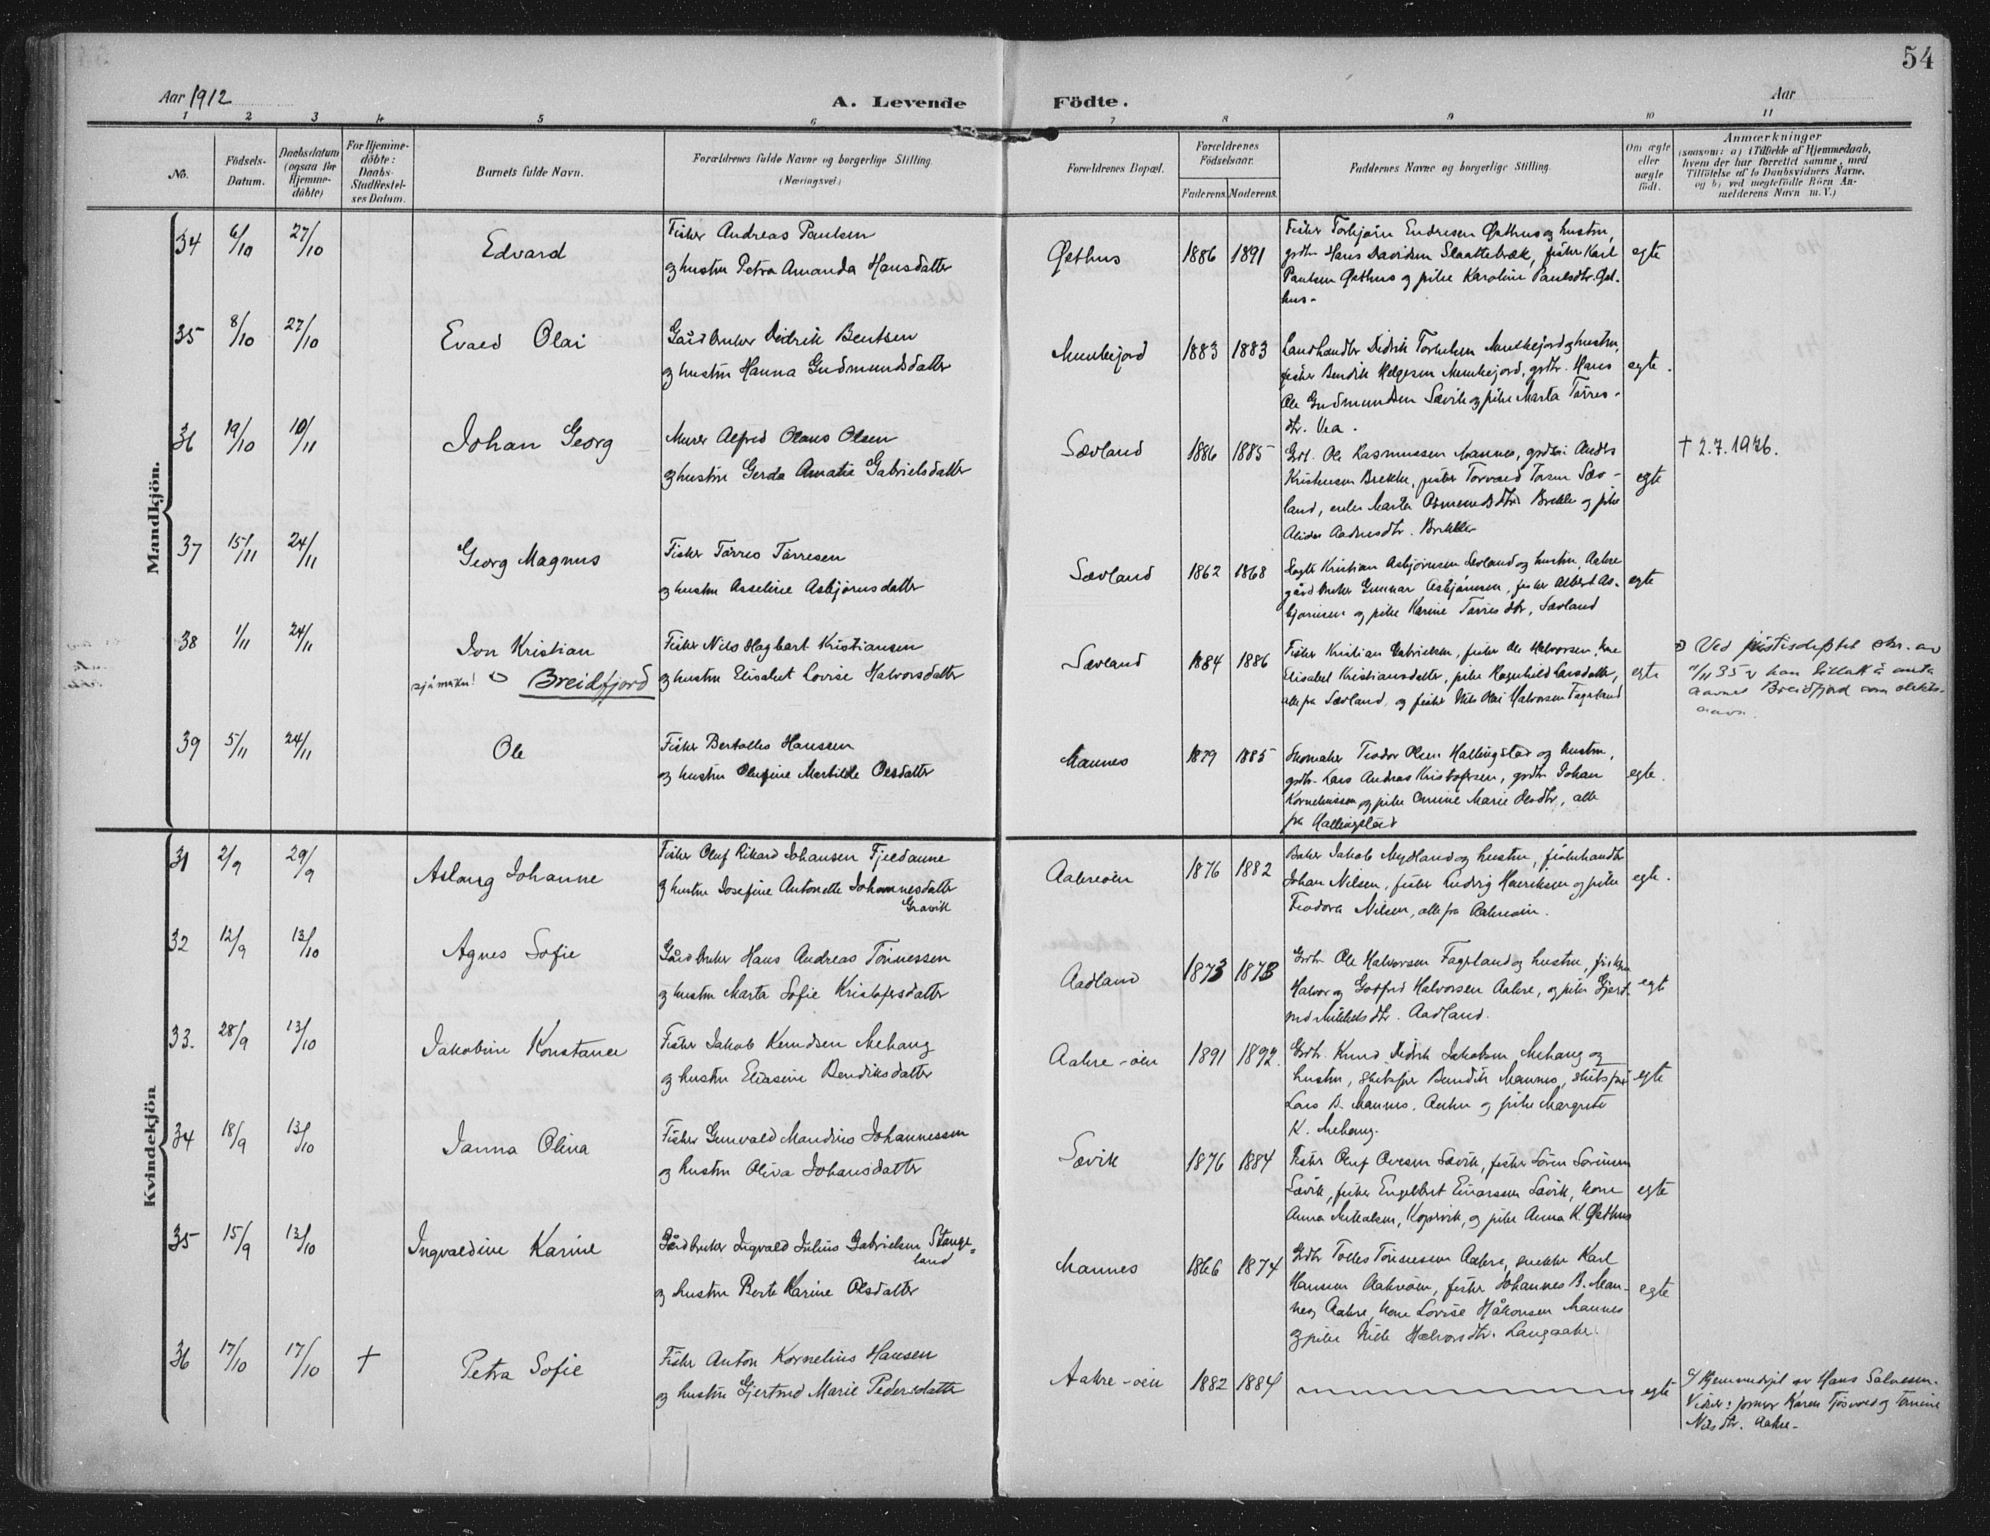 54
Aar 1912
A. Levende Födte.
Aar
1 2 3 4 5 6 7 8 9 10 11
No.
Födsels-Datum.
Daabsdatum (ogsaa for Hjemmedöbte)
For Hjemmedöbte: Daabs-Stadfæstelses Datum.
Barnets fulde Navn.
Forældrenes fulde Navne og borgerlige Stilling.
(Næringsvei)
Forældrenes Bopæl.
Forældrenes Födselsaar.
Faderens. Moderens.
Faddernes Navne og borgerlige Stilling.
Om ægte eller uægte födt.
Anmærkninger
(saasom: a) i Tilfælde af Hjemmedaab,
hvem der har forrettet samme, med
Tilföielse af to Daabsvidners Navne,
og b) ved uægtefödte Börn An-
melderens Navn m. V.)
Mandkjön.
34 6/10 27/10 Edvard
Fisker Andreas Paulsen
og hustru Petra Amanda Hansdatter
Østhus 1886 1891
Fisker Torbjørn Endresen Østhus og hustru,
grdbr Hans Davidsen Slaattebræk, fisker Karl
Paulsen Østhus og pike Karoline Paulsdtr. Øst-
hus-
egte
35 8/10 27/10 Evald Olai
Gårdbruker Didrik Bentsen
og hustru Hanna Gudmundsdatter
Munkejord 1883 1883
Landhandler Didrik Torkelsen Munkejord og hustru,
fisker Bendik Helgesen Munkejord, grdbr. Hans
Ole Gudmundsen Sævik og pike Marta Tørres-
dtr. Vea.
egte.
36 19/10 10/11 Johan Georg
Murer Alfred Olaus Olsen
og hustru Gerda Amalia Gabrielsdatter
Sævland 1886 1885
Grdbr. Ole Rasmussen Mannes, grdbr Anders
Kristensen Brekke, fisker Torvald Torsen Sæv-
land, enke Marta Osmundsdtr Brekke og pike
Brekke
egte
† 2.7.1976.
37 15/11 24/11 Georg Magnus
Fisker Tørres Tørresen
og hustru Asseline Asbjørnsdatter
Sævland 1862 1868
Kristian Asbjørnsen Sævland og hustru, Aakre
gårdbruker Gunnar Asbjørnsen, fisker Albert As-
bjørnsen og pike Karine Tørresdtr, Sævland
egte
38 1/11 24/11 Jon Kristian
Breidfjord
Fisker Nils Hagbart Kristiansen
og hustru Elisabet Lovise Halvorsdatter
Sævland 1884 1886
Fisker Kristian Gabrielsen, fisker Ole Halvorsen, kone
Elisabet Kristiansdatter, pike Ragnhild Larsdatter,
alle fra Sævland, og fisker Nils Olai Halvorsen Fageland
egte
Ved justisdeptet skr. av
/11 35 har tillatt å anta
navnet Breidfjord som slekts-
navn.
39 5/11 24/11 Ole
Fisker Bertolles Hansen
og hustru Olufine Martilde Olsdatter
Mannes 1879 1885
Skomaker Teodor Olsen Hallingstad og hustru,
grdbr. Lars Andreas Kristofersen, grdbr Johan
Korneliussen og pike Marie Olsdtr, alle
fra Hallingstad
egte.
Kvindekjön
31 2/9 29/9 Aslaug Johanne
Fisker Oluf Rikard Johansen Fjeldanne
og hustru Josefine Antonette Johannesdatter
Gravik
Aakreøen 1876 1882
Baker Jakob Mydland og hustru, fiskehandler
Johan Nilsen, fisker Ludvig Henriksen og pike
Teodora Nilsen, alle fra Aakreøen.
egte.
32 12/9 13/10 Agnes Sofie
Gårdbruker Hans Andreas Tønnessen
og hustru Marta Sofie Kristofersdatter
Aadland 1873 1878
Grdbr Ole Halvorsen Fageland og hustru, fiskere
Halvor og Godfred Halvorsen Aakre, og pike Gjert-
rud Mikkelsdtr. Aadland.
egte
33. 28/9 13/10 Jakobine Konstance
Fisker Jakob Knudsen Mehaug
og hustru Eliasine Bendiksdatter
Aakre-øen 1891 1892.
Grdbr. Knud Didrik Jakobsen Mehaug og
hustru, skibsfører Bendik Mannes, skibsfører
Lars B. Mannes, Aakre og pike Margrete
K. Mehaug.
egte
34 18/9 13/10 Janna Olina
Fisker Gunvald Maudius Johannessen
og hustru Oliva Johansdatter
Sævik 1876 1884
Fisker Oluf Ovesen Sævik, fisker Sören Sørensen
Sævik, fisker Engelbret Einarssen Sævik, kone
Anna Mikalsen, Kopervik, og pike Anna K. Østhus
egte
35 15/9 13/10 Ingvaldine Karine
Gårdbruker Ingvald Julius Gabrielsen Stange-
land
og hustru Berte Karine Olsdatter
Mannes 1866 1874
Grdbr Tolles Tønnessen Aakre, snekker Karl
Hansen Aakreøen, fisker Johannes B. Man-
nes, Aakre, kone Lovise Håkonsen Mannes
og pike Halvorsdtr. Langaaker.
egte
36 17/10 17/10 † Petra Sofie
Fisker Anton Kornelius Hansen
og hustru Gjertrud Marie Pedersdatter
Aakre-øen 1882 1884
egte
Hjemmedøpt av Hans Salvesen.
Vidner: jormor Karen Tjøsvold og Tomine
Nilsdtr. Aakre-